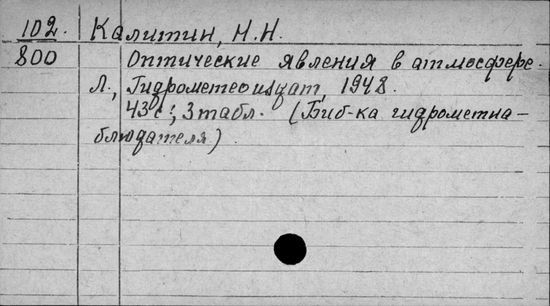 102. Калитин, Н.Н.
800 Оптические явления в атмосфере.
Л., Гидрометеоиздат, 1948.
43с; 3 табл. (Биб-ка гидрометна-
блюдателя.)